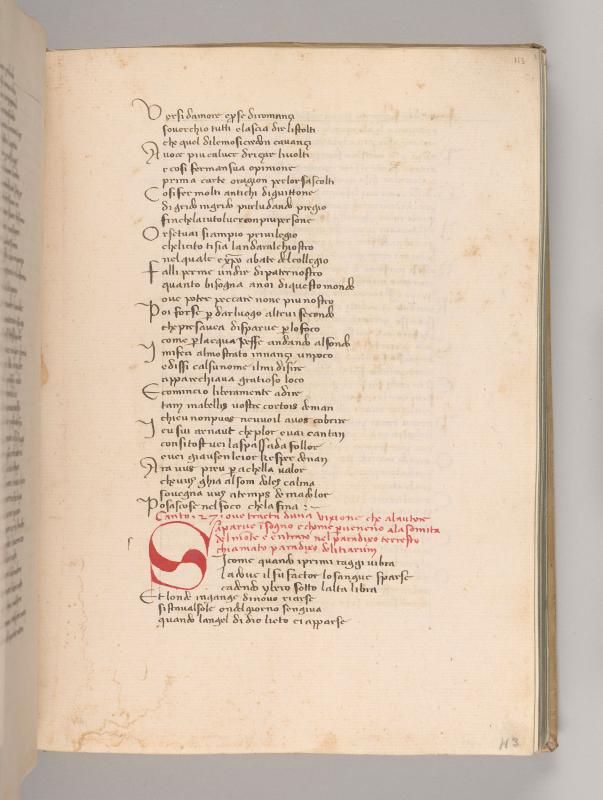 113
Versi damore e prose di romançi
soverchio tutti e lascia dir li stolti
che quel di lemosi credon cavançi
A voce piu caluer driçar li volti
e cosi ferman sua opinione
prima carte o ragion per lor sascolti
Cosi fer molti antichi di guittone
di grido in grido pur lui dando pregio
finche la vinto luer con piu persone
Or se tu ai si ampio privilegio
che licito ti sia landar al chiostro
nel quale e xpo abate del collegio
Falli per me un dir di paternostro
quanto bisogna a noi di questo mondo
ove poter peccare none piu nostro
Poi forse p dar luogo altrui secondo
che presso avea disparve p lo foco
come p lacqua il pesse andando al fondo
I mi feci al mostrato innançi un poco
e dissi cal suo nome il mi disire
apparecchiava gratioso loco
E comincio liberamente a dire
tam mabellis vostre cortois deman
chieu non puos ne vuoil a vos cobrire
I eu sui arnaut che plor e vai cantan
consitost vei la spassada follor
e vei giausen le ior kesper denan
Ara vus preu p achella valor
che vus ghia al som de les calina
sovegna vus a temps de ma dolor
Posascose nel foco che la fina :~
Canto . 27 . ove tracta duna visione che alautore
aparve in sogno e chome pvenero a la somita
del mote e entraro nel paradixo terrestro
chiamato paradixo delitiarum
S
Icome quando i primi raggi vibra
la dove il su factor lo sangue sparse
cadendo ybero sotto lalta libra
Et londe in gange di novo riarse
si stava l sole onde l giorno sen giva
quando langel di dio lieto ci apparse
113